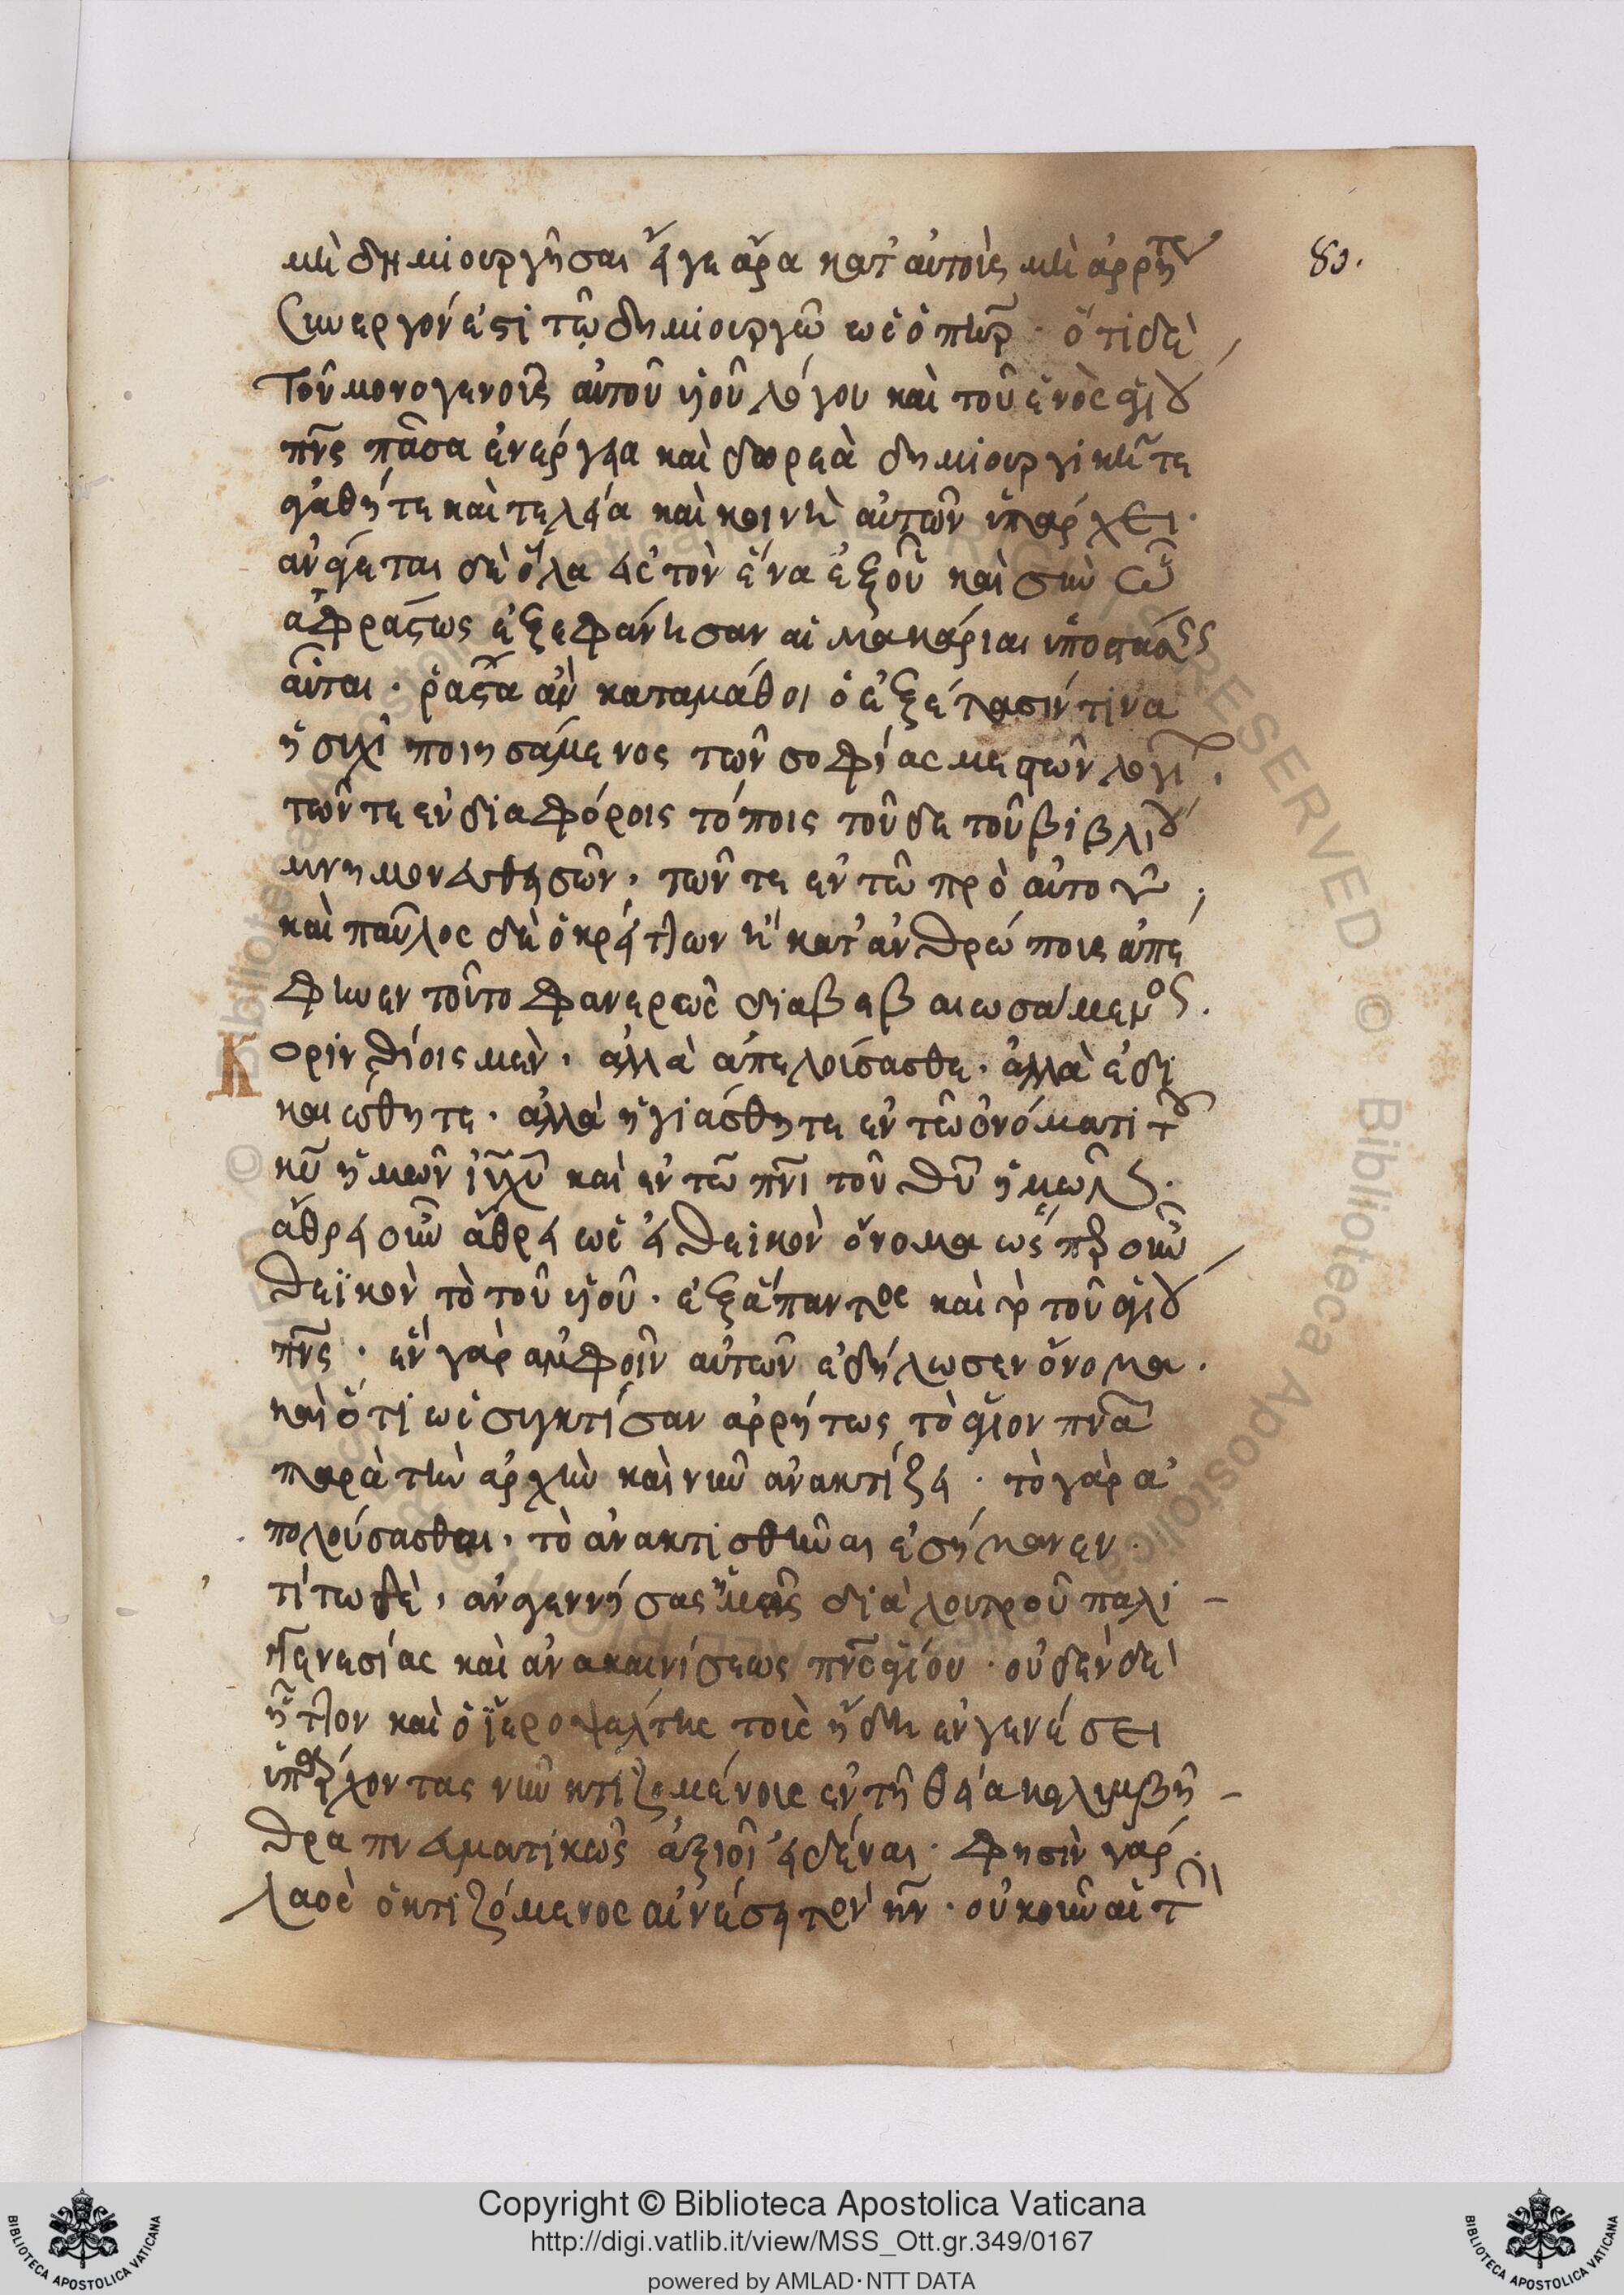 80.
μὴ δημιουργῆσαι εἴγε ἄρα κατ' αὐτοὺς μὴ ἀρρήτως
συνεργόν ἐστι τῷ δημιουργῷ ὡς ὁ πηρ · ὅτι δὲ
τοῦ μονογενοῦς αὐτοῦ υἱοῦ λόγου καὶ τοῦ ἑνὸς ἁγίου
πνς πᾶσα ἐνέργεια καὶ δωρεὰ δημιουργικὴ τε
ἀγαθή τε καὶ τελεία καὶ κοινὴ αὐτῶν ὑπάρχει ·
ἀνάγεται δὲ ὅλα εἰς τὸν ἕνα ἐξ οὗ καὶ σὺν ᾧ
ἀφράστως ἐξεφάνησαν αἱ μακάριαι ὑποστάσεις
αὗται · ῥᾷστα ἂν καταμάθοι ὁ ἐξέτασίν τινα
ἡσυχῇ ποιησάμενος τῶν σοφίας μεστῶν λογίων ·
τῶν τε ἐν διαφόροις τόποις τοῦδε τοῦ βιβλίου
μνημονευθεισῶν, τῶν τε ἐν τῷ πρὸ αὐτοῦ ·
καὶ παῦλος δὲ ὁ κρείττων ἢ κατ' ἀνθρώπους ἀπέ
φηνεν τοῦτο φανερῶς διαβεβαιωσάμενος ·
Κορινθίοις μὲν · ἀλλὰ ἀπελούσασθε · ἀλλὰ ἐδι
καιώθητε · ἀλλὰ ἡγιάσθητε ἐν τῷ ὀνόματι τοῦ
κυ ἡμῶν ιυ χυ καὶ ἐν τῷ πνι τοῦ θυ ἡμῶν ·
ἄθρει οὖν ἄθρει ὡς εἰ θεικὸν ὄνομα ὥσπερ οὖν
θεϊκὸν τὸ τοῦ υἱοῦ · ἐξάπαντος καὶ τὸ τοῦ ἁγίου
πνς · ἓν γὰρ ἀμφοῖν αὐτῶν ἐδήλωσεν ὄνομα ·
καὶ ὅτι ὡς συγκτίσαν ἀρρήτως τὸ ἅγιον πνα
παρὰ τὴν ἀρχὴν καὶ νῦν ἀνακτίζει · τὸ γὰρ ἀ
πολούσασθαι, τὸ ἀνακτισθῆναι ἐσήμανεν ·
τίτῳ δὲ, ἀναγεννήσας ἡμᾶς διὰ λουτροῦ παλι
γγενεσίας καὶ ἀνακαινίσεως πνς ἁγίου · οὐδὲν δὲ
ἧττον καὶ ὁ ἱεροψάλτης τοὺς ἤδη ἐν γενέσει
ὑπάρχοντας νῦν κτιζομένους ἐν τῇ θείᾳ κολυμβή
θρᾳ πνευματικῶς ἀξιοῖ εἰδέναι · φησὶν γάρ ·
λαὸς ὁ κτιζόμενος αἰνέσει τὸν κν · οὐκοῦν αἱ τ
Copyright © Biblioteca Apostolica Vaticana
http://digi.vatlib.it/view/MSS_Ott.gr.349/0167
powered by AMLAD·NTT DATA
BIBLIOTECA APOSTOLICA VATICANA
BIBLIOTECA APOSTOLICA VATICANA